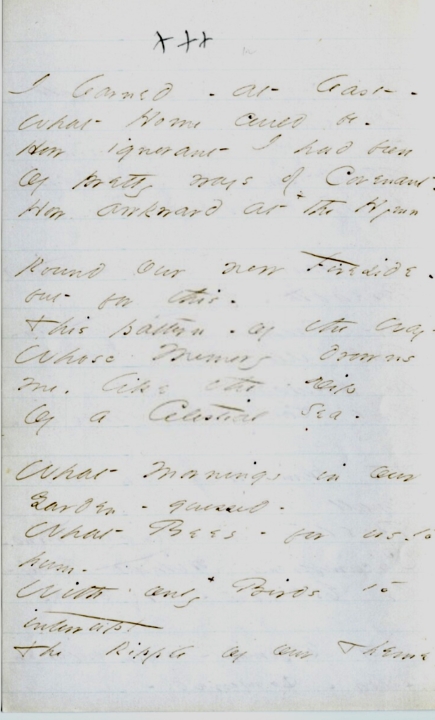 +++
I learned - at least -
What Home could be -
How ignorant I had been
Of pretty ways of Covenant -
How awkward at + the Hymn
Round our new Fireside -
but for this -
This pattern - of the Way -
Whose Memory drowns
me, like the Dip
Of a Celestial Sea -
What Mornings in our
Garden - guessed -
What Bees - for us - to
hum -
With only + Birds to
interrupt
The Ripple of our Theme